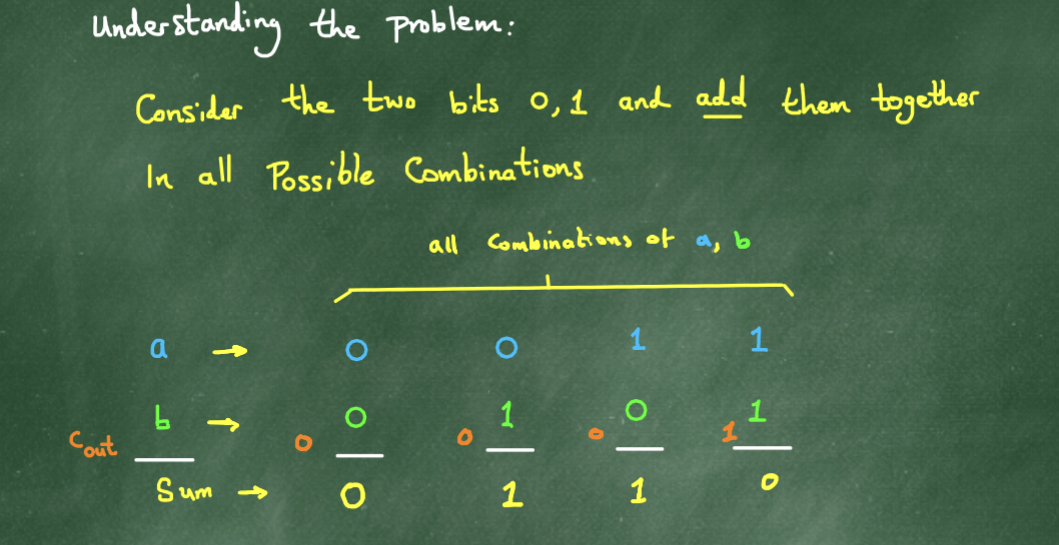 Understanding the problem:
Consider the two bits 0, 1 and add them together
In all Possible Combinations
all Combinations of a, b
a → 0 0 1 1
b → 0 1 0 1
Cout 0 0 0 1
Sum → 0 1 1 0